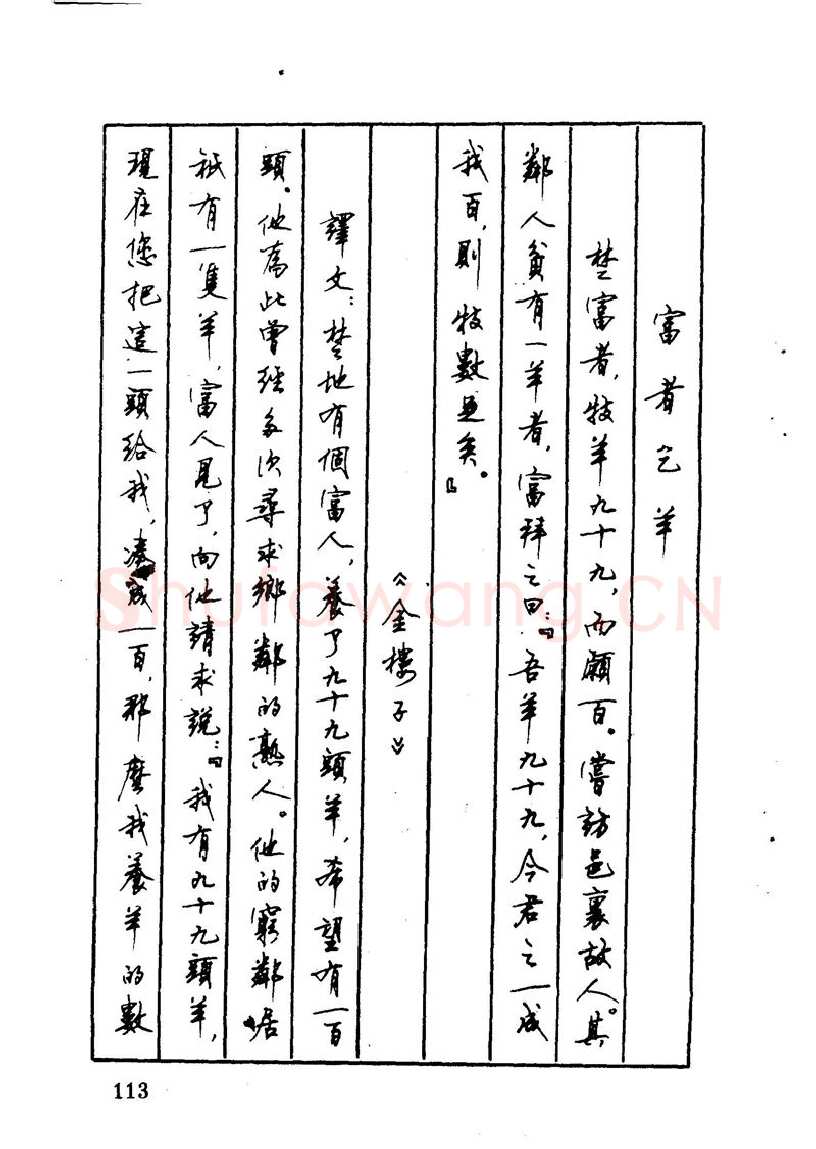 富者乞羊
楚富者,牧羊九十九,而願百。嘗訪邑裏故人。其
鄰人貧有一羊者,富拜之曰:『吾羊九十九,今君之一成
我百,則牧數足矣。』
《金樓子》
譯文:楚地有個富人,養了九十九頭羊,希望有一百
頭。他為此曾經多次尋求鄉鄰的熟人。他的窮鄰居
祇有一隻羊,富人見了,向他請求說:『我有九十九頭羊,
現在您把這一頭給我,湊成一百,那麼我養羊的數
113
Shufawang.CN